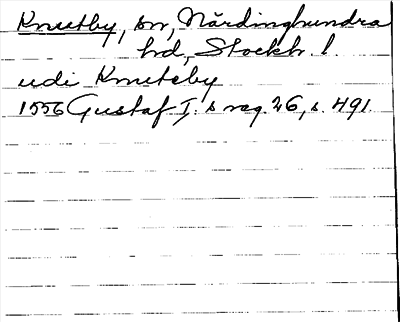 Knutby, sn, Närdinghundra
hd, Stockh. l.
udi Knuteby
1556 Gustaf I:s reg. 26, s. 491.